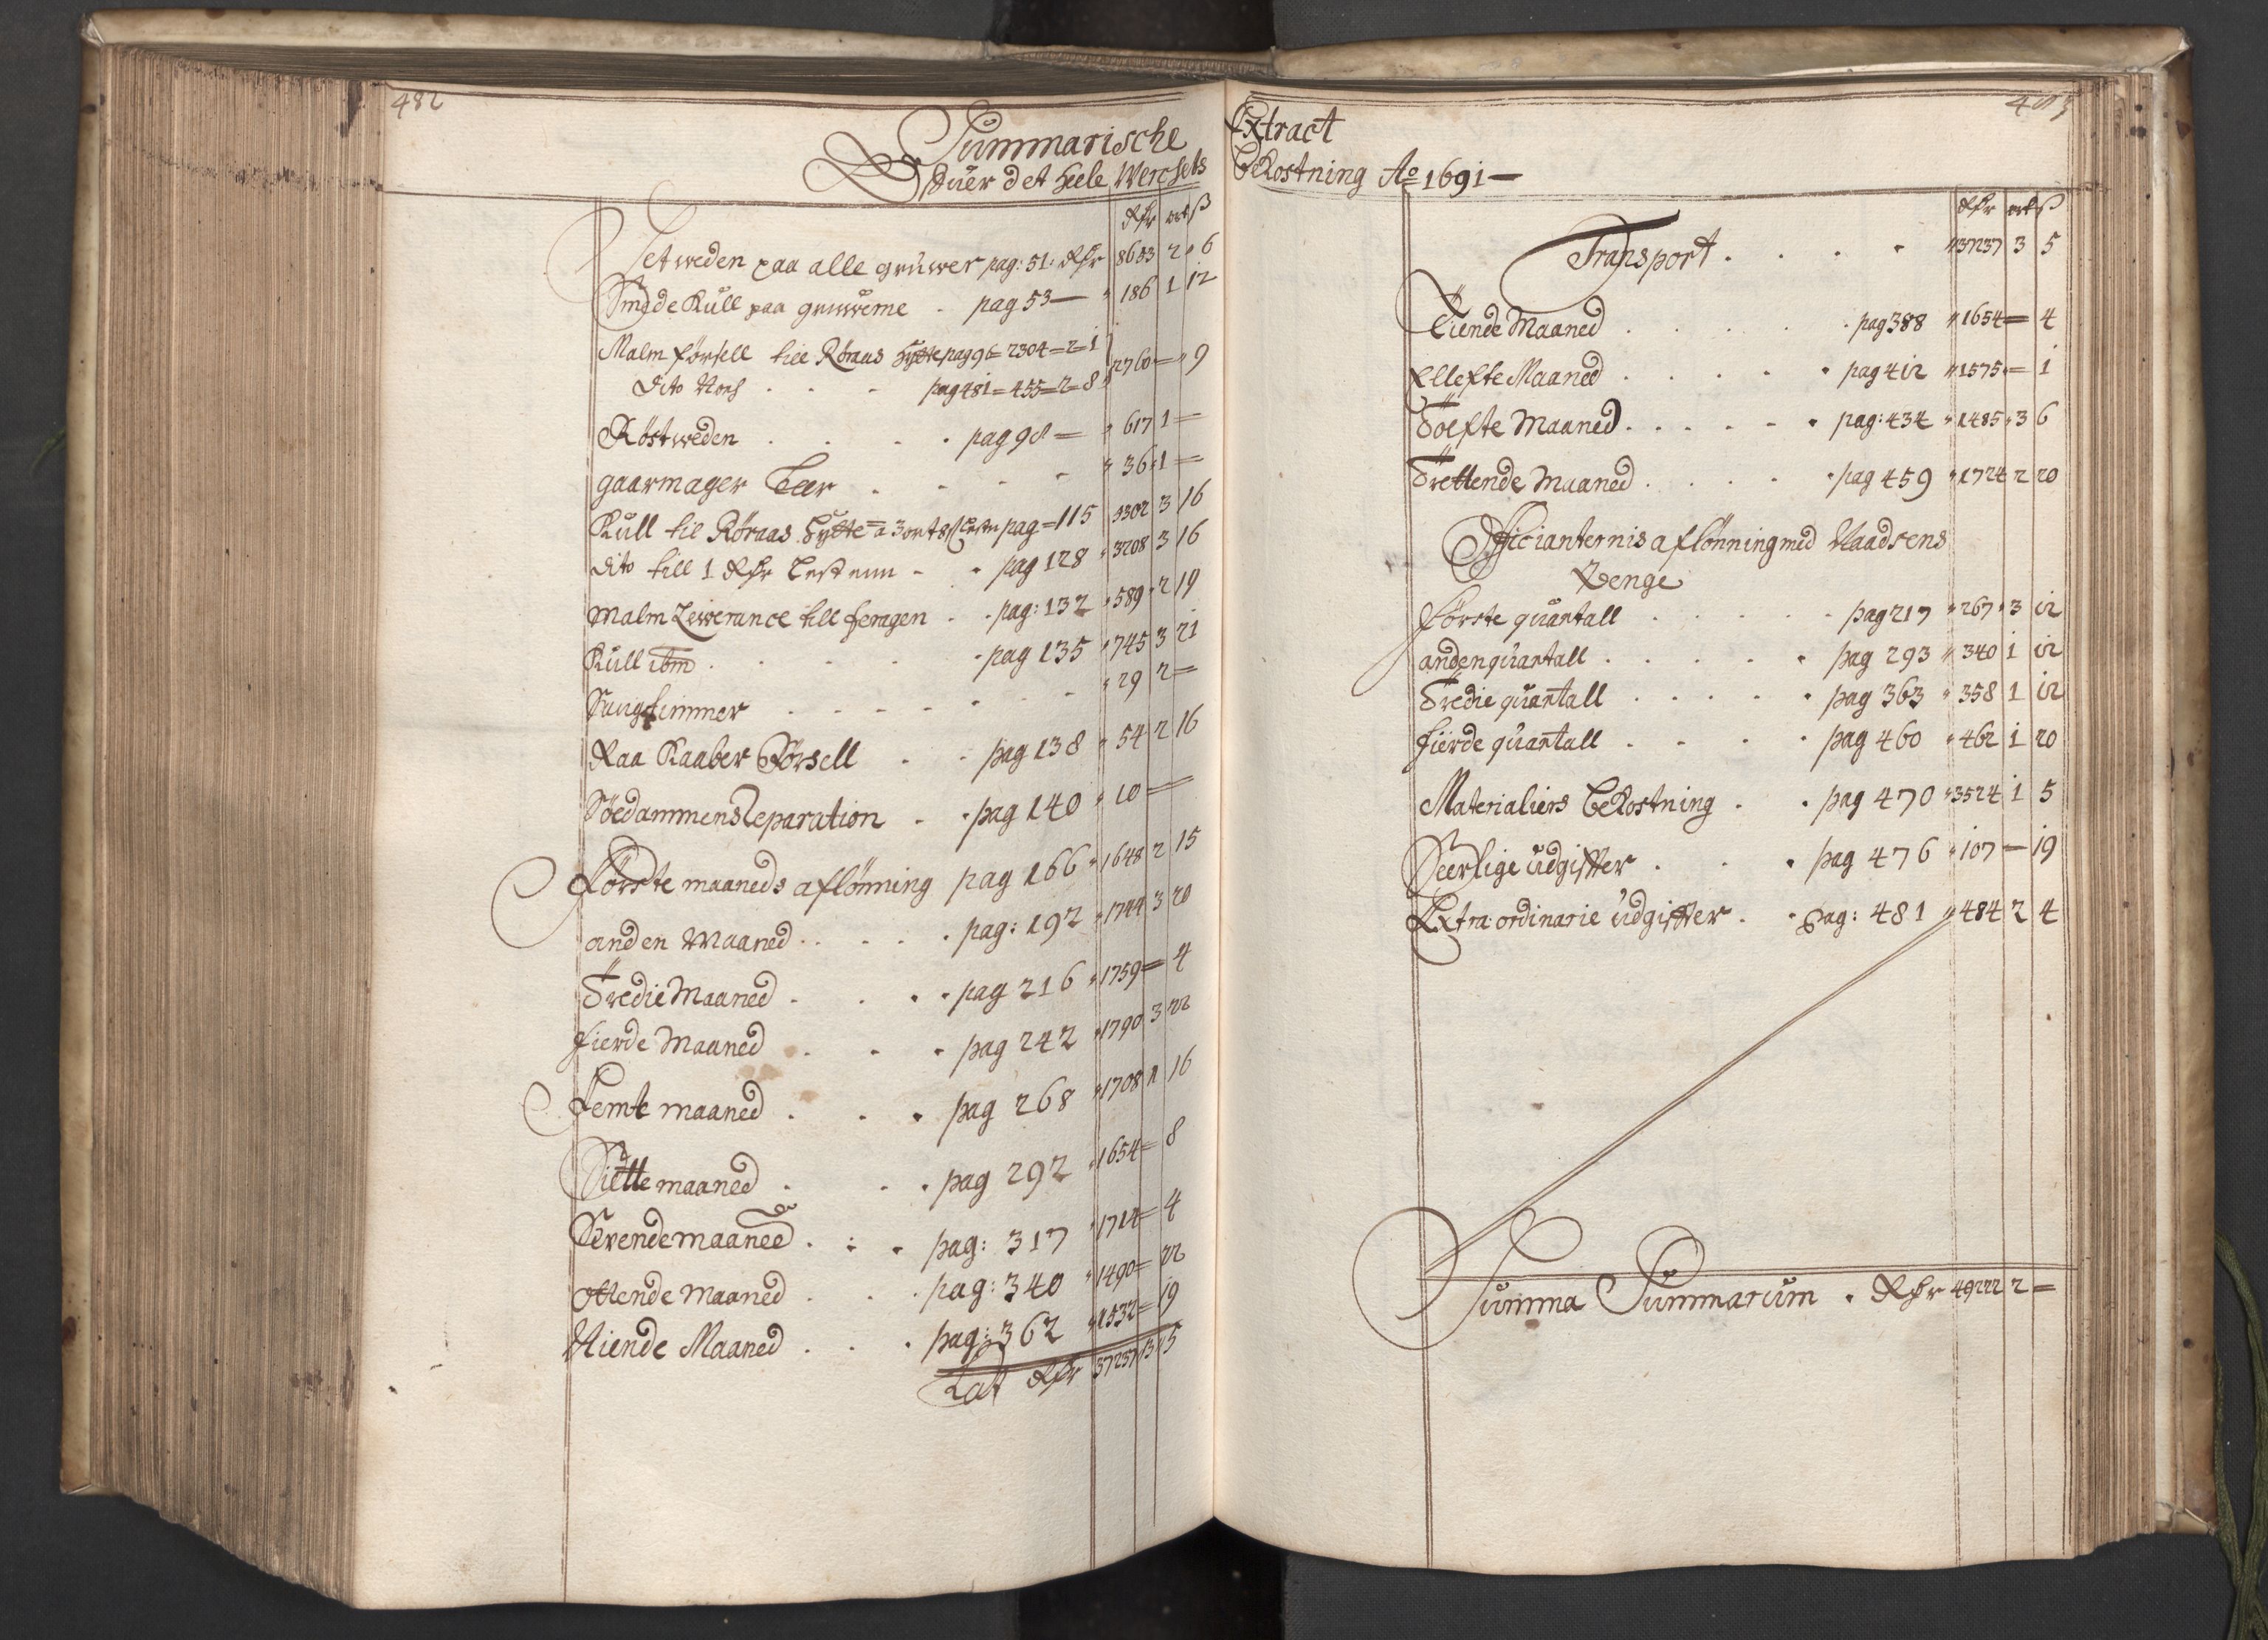 482
Summarische
Ofuer det heele Werchets
Rdr ort ß
Setweden paa alle gruwer pag: 51: Rdr 8653 2 6
Smede Kull paa gruwerne . pag 53 — 186 1 12
Malm førsell till Røraas hytte pag 96 = 2304 = 2 = 1
Dito Noch . . . pag 481 = 455 = 2 = 8 2760 = 9
Röstweden . . . . pag 98 = 617 1 =
gaarmager Leer . . . . 36 1 =
Kull til Røraas Hytte = a 3 ort 8 ß Lesten pag = 115 3302 3 16
dito till 1 Rdr Lesten . . pag 128 3208 3 16
Malm Lewerance till feragen . . pag: 132 589 2 19
Kull ibm . . . . pag 135 745 3 21
29 2 =
Raa Kaaber Førsell . . pag 138 54 2 16
Söedammens Reparation . . pag 140 10 =
Förste maaneds aflönning pag 166 1648 2 15
anden Maaned . . . . pag: 192 1744 3 20
Tredie Maaned . . . . pag 216 1759 = 4
fierde Maaned . . . pag 242 1790 3 22
Femte maaned . . . pag 268 1708 1 16
Siette maaned . . . pag 292 1654 = 8
Sevende maaned . . . pag: 317 1714 = 4
ottende Maaned . . . pag: 340 1490 = 22
Niende Maaned . . . pag: 362 1532 = 19
Lat Rdr 37237 3 5
483
Extract
beKostning Ao 1691 —
Rdr ort ß
Transport . . . . 37237 3 5
Tiende Maaned . . . . . pag 388 1654 = 4
Ellefte Maaned . . . . . pag 412 1575 = 1
Tölfte Maaned . . . . . pag: 434 1485 3 6
Trettende Maaned . . . . . pag 459 1724 2 20
Officianternis aflönning med Naadsens
Penge
Förste quartall . . . . . pag 217 267 3 12
anden quartall . . . . . pag 293 340 1 12
Tredie quartall . . . . . pag 363 358 1 12
fierde quartall . . . . pag 460 462 1 20
Materialiers beKostning . . pag 470 3524 1 5
Seerlige udgiffter . . . pag 476 107 — 19
Extra ordinarie udgiffter . . pag: 481 484 2 4
Summa Summarum . Rdr 49222 2 =